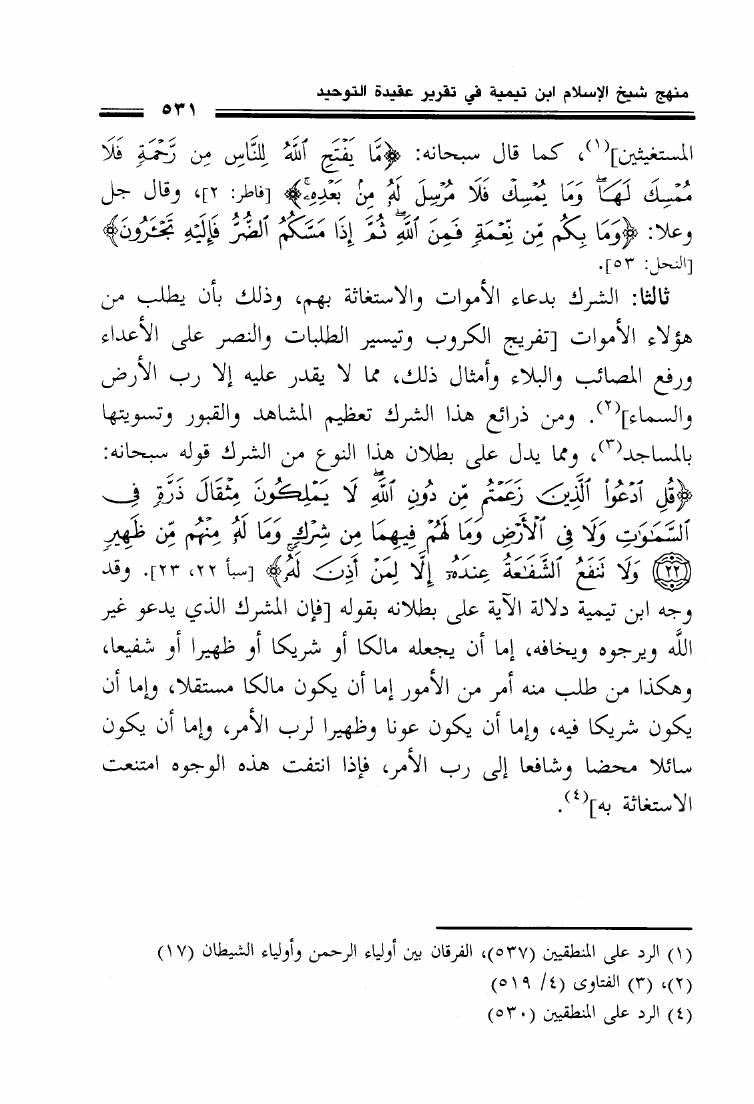 منهج شيخ الإسلام ابن تيمية في تقرير عقيدة التوحيد
٥٣١
المستغيثين](١)، كما قال سبحانه: ﴿مَّا يَفْتَحِ ٱللَّهُ لِلنَّاسِ مِن رَّحْمَةٍ فَلَا
مُمْسِكَ لَهَا ۖ وَمَا يُمْسِكْ فَلَا مُرْسِلَ لَهُۥ مِنۢ بَعْدِهِۦ ۚ﴾ [فاطر: ٢]، وقال جل
وعلا: ﴿وَمَا بِكُم مِّن نِّعْمَةٍ فَمِنَ ٱللَّهِ ۖ ثُمَّ إِذَا مَسَّكُمُ ٱلضُّرُّ فَإِلَيْهِ تَجْـَٔرُونَ﴾
[النحل: ٥٣].
ثالثا: الشرك بدعاء الأموات والاستغاثة بهم، وذلك بأن يطلب من
هؤلاء الأموات [تفريج الكروب وتيسير الطلبات والنصر على الأعداء
ورفع المصائب والبلاء وأمثال ذلك، مما لا يقدر عليه إلا رب الأرض
والسماء](٢). ومن ذرائع هذا الشرك تعظيم المشاهد والقبور وتسويتها
بالمساجد(٣)، ومما يدل على بطلان هذا النوع من الشرك قوله سبحانه:
﴿قُلِ ٱدْعُوا۟ ٱلَّذِينَ زَعَمْتُم مِّن دُونِ ٱللَّهِ ۖ لَا يَمْلِكُونَ مِثْقَالَ ذَرَّةٍ فِى
ٱلسَّمَـٰوَٰتِ وَلَا فِى ٱلْأَرْضِ وَمَا لَهُمْ فِيهِمَا مِن شِرْكٍ وَمَا لَهُۥ مِنْهُم مِّن ظَهِيرٍ
﴿٢٢﴾ وَلَا تَنفَعُ ٱلشَّفَـٰعَةُ عِندَهُۥٓ إِلَّا لِمَنْ أَذِنَ لَهُۥ﴾ [سبأ ٢٢، ٢٣]. وقد
وجه ابن تيمية دلالة الآية على بطلانه بقوله [فإن المشرك الذي يدعو غير
الله ويرجوه ويخافه، إما أن يجعله مالكا أو شريكا أو ظهيرا أو شفيعا،
وهكذا من طلب منه أمر من الأمور إما أن يكون مالكا مستقلا، وإما أن
يكون شريكا فيه، وإما أن يكون عونا وظهيرا لرب الأمر، وإما أن يكون
سائلا محضا وشافعا إلى رب الأمر، فإذا انتفت هذه الوجوه امتنعت
الاستغاثة به](٤).
(١) الرد على المنطقيين (٥٣٧)، الفرقان بين أولياء الرحمن وأولياء الشيطان (١٧)
(٢)، (٣) الفتاوى (٤/ ٥١٩)
(٤) الرد على المنطقيين (٥٣٠)